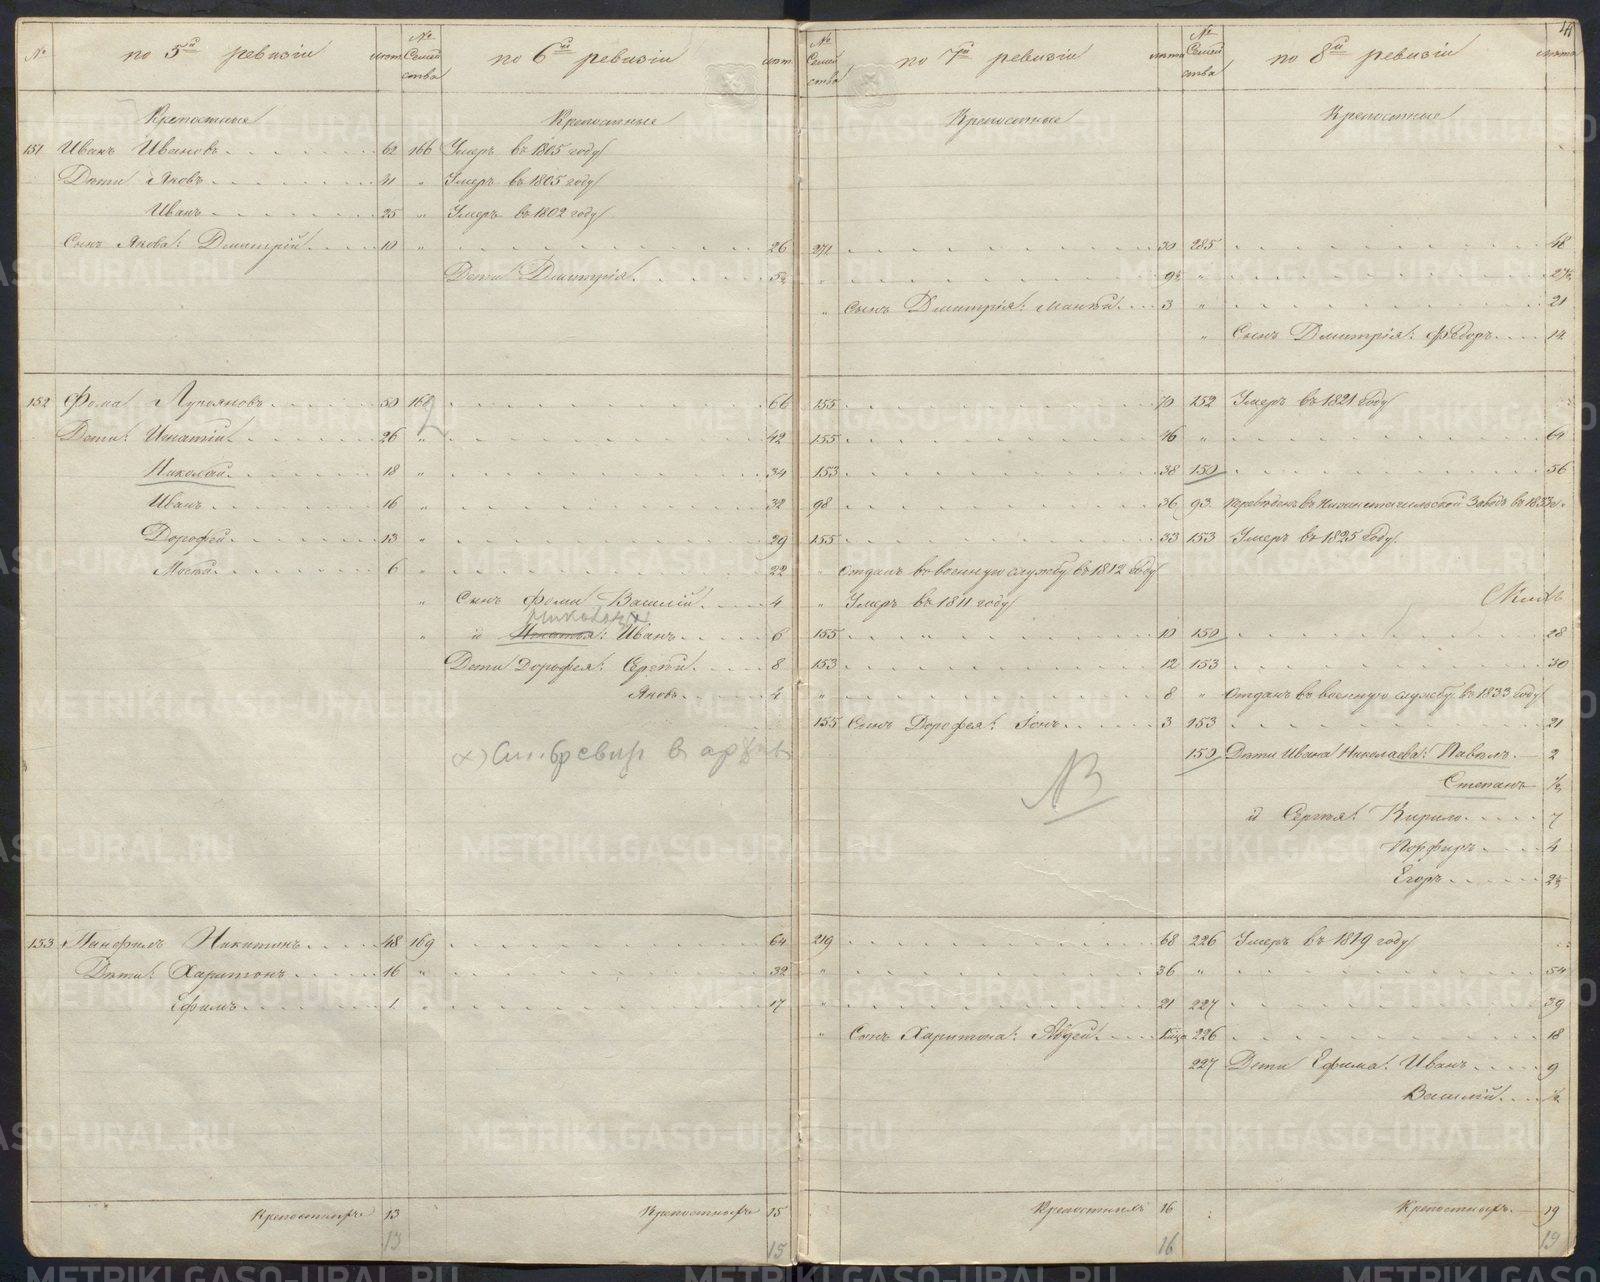 № по 5й ревизіи лѣта № Семейства по 6й ревизіи лѣта № Семейства по 7й ревизіи лѣта № Семейства по 8й ревизіи лѣта
Крепостные Крепостные Крепостные Крепостные
151 Иванъ Ивановъ 62 166 Умеръ въ 1805 году
Дѣти Яковъ 41 " Умеръ въ 1805 году
Иванъ 25 " Умеръ въ 1802 году
Сынъ Якова: Дмитрій 10 " 26 271 30 285 48
Дети Дмитрія 5½ 9½ " 27½
" Сынъ Дмитрія: 3 " 21
" Сынъ Дмитрія: Ѳедоръ 14
152 Фома Лукояновъ 50 168 66 155 70 152 Умеръ въ 1821 году
Дети: Игнатій 26 " 42 155 46 " 64
Николай 18 " 34 153 38 150 56
Иванъ 16 " 32 98 36 93 Переведенъ въ Нижнетагильской Заводъ въ 1833 г.
Дорофей 13 " 29 155 33 153 Умеръ въ 1825 году
6 " 22 " Отданъ въ военную службу въ 1812 году
" Сынъ Фомы Василій 4 " Умеръ въ 1811 году
" и Игнатья: Иванъ 6 155 " 10 150 28
Дети Дорофея: Сергей 8 153 12 153 30
Яковъ 4 " 8 " Отданъ въ военную службу въ 1833 году
155 Сынъ Дорофея: 3 153 21
150 Дѣти Ивана Николаева: Павелъ 2
Степанъ ½
и Сергѣя: Кирило 7
Порфиръ 4
Егоръ 2½
153 Панфилъ Никитинъ 48 169 64 219 68 226 Умеръ въ 1819 году
Дѣти: Харитонъ 16 " 32 " 36 " 54
Ефимъ 1 " 17 " 21 227 39
" Сынъ Харитона: Авдей 226 18
227 Дети Ефима: Иванъ 9
Василій ½
Крепостныхъ 13 Крепостныхъ 15 Крепостныхъ 16 Крепостныхъ 19
13 15 16 19
METRIKI.GASO-URAL.RU